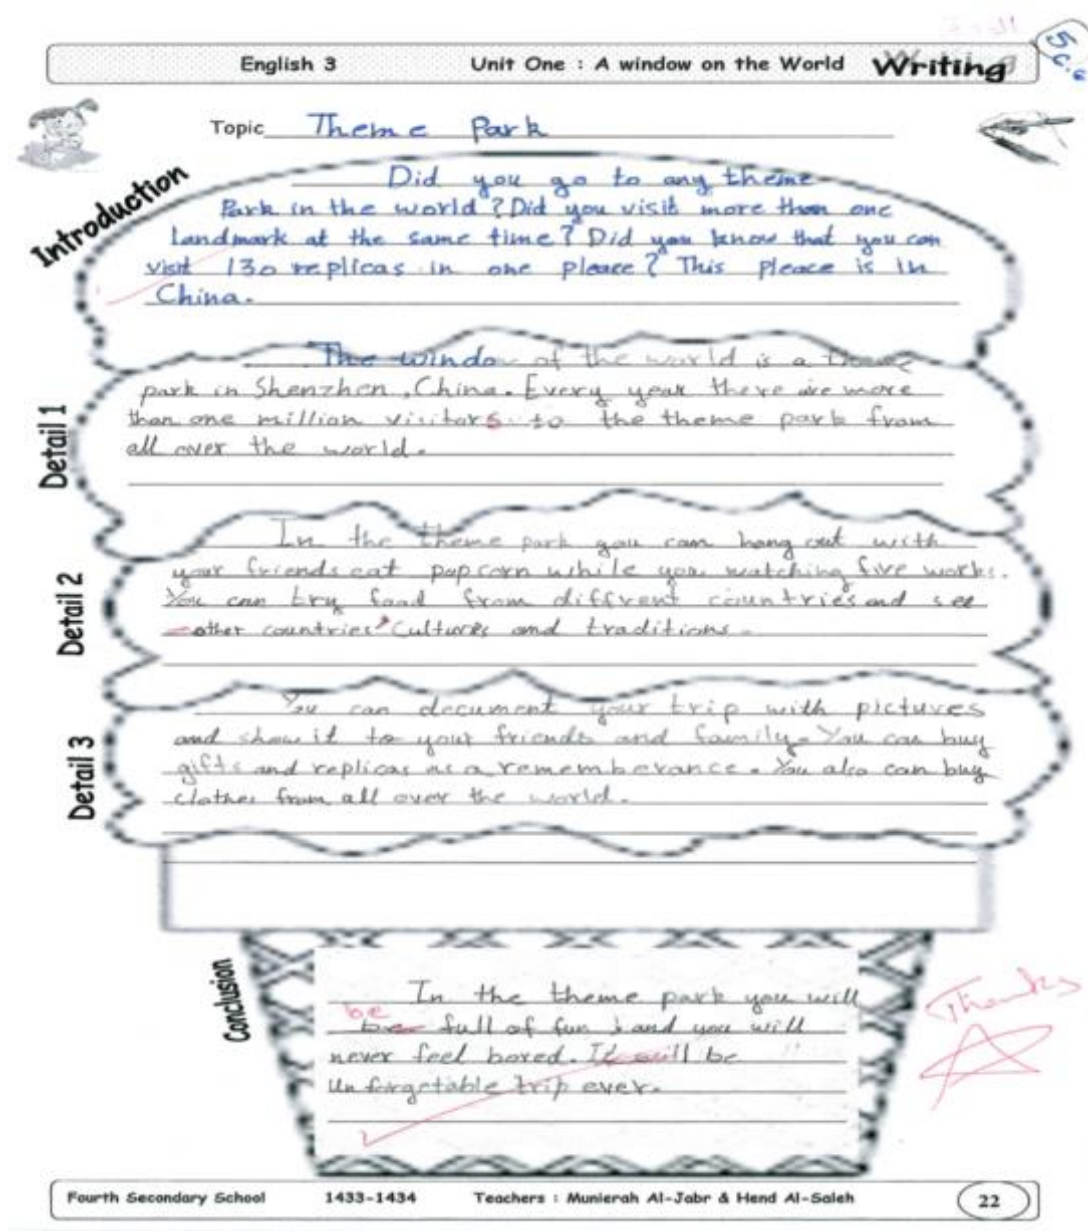 English 3 Unit One : A window on the World Writing
5
Topic Theme Park
Introduction
Did you go to any theme
Park in the world? Did you visit more than one
Landmark at the same time? Did you know that you can
visit 130 replicas in one pleace? This pleace is in
China.
Detail 1
The window of the world is a theme
park in Shenzhen, China. Every year there are more
than one million visitors to the theme park from
all over the world.
Detail 2
In the theme park you can hang out with
your friends eat popcorn while you watching fire works.
You can try food from diffrent countries and see
other countries' Cultures and traditions.
Detail 3
You can document your trip with pictures
and show it to your friends and family. You can buy
gifts and replicas as a rememberance. You also can buy
clothes from all over the world.
Conclusion
In the theme park you will
be
full of fun and you will
never feel bored. It will be
Unforgetable trip ever.
Thanks
Fourth Secondary School 1433-1434 Teachers : Munierah Al-Jabr & Hend Al-Saleh 22